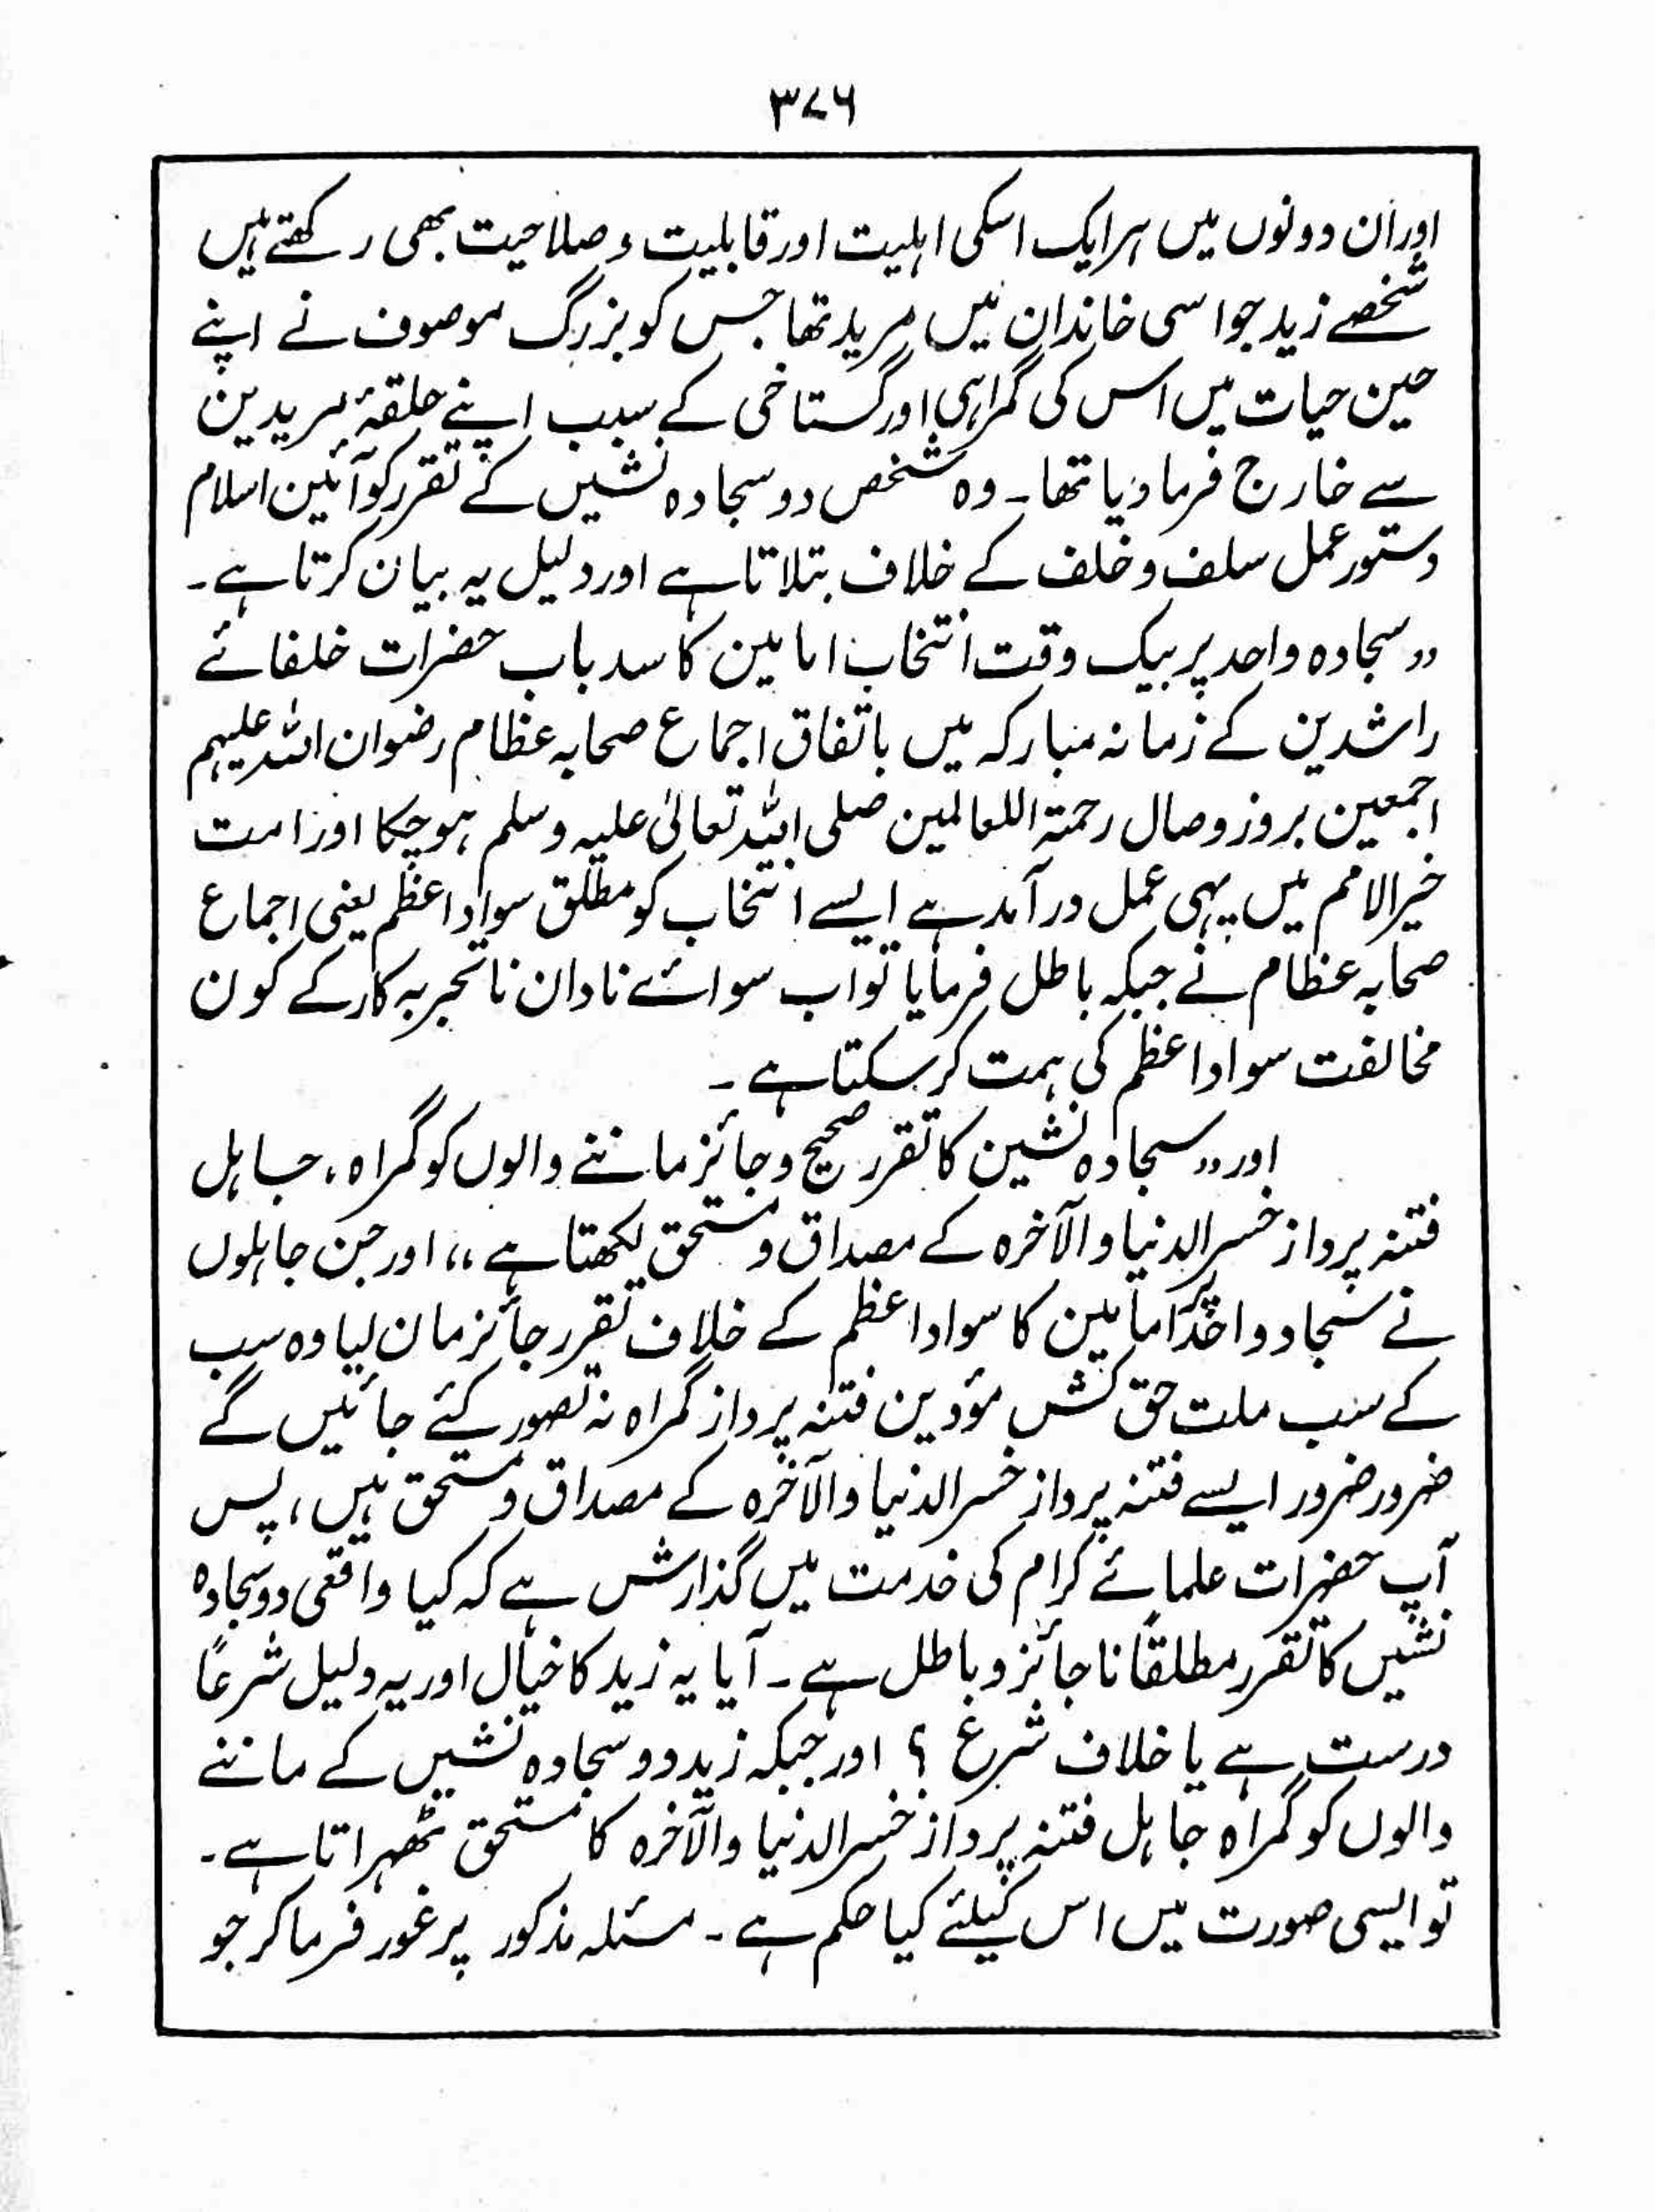 ۳۷۶
اور ان دونوں میں ہر ایک اسکی اہلیت اور قابلیت و صلاحیت بھی رکھتے ہیں
شخصے زید جو اسی خاندان میں مرید تھا جس کو بزرگ موصوف نے اپنے
حین حیات میں اس کی گمراہی اور گستاخی کے سبب اپنے حلقۂ مریدین
سے خارج فرما دیا تھا۔ وہ شخص دو سجادہ نشیں کے تقرر کو آئین اسلام
دستور عمل سلف و خلف کے خلاف بتلاتا ہے اور دلیل یہ بیان کرتا ہے۔
"سجادہ واحد پر بیک وقت انتخاب امامین کا سد باب حضرات خلفائے
راشدین کے زمانہ مبارکہ میں باتفاق اجماع صحابہ عظام رضوان اللہ علیہم
اجمعین بروز وصال رحمۃ اللعالمین صلی اللہ تعالیٰ علیہ وسلم ہو چکا اور امت
خیر الامم میں یہی عمل درآمد ہے ایسے انتخاب کو مطلق سواد اعظم یعنی اجماع
صحابہ عظام نے جبکہ باطل فرمایا تو اب سوائے نادان ناتجربہ کار کے کون
مخالفت سواد اعظم کی ہمت کر سکتا ہے۔
اور "سجادہ نشین کا تقرر صحیح و جائز ماننے والوں کو گمراہ، جاہل
فتنہ پرداز خسر الدنیا والآخرہ کے مصداق و مستحق لکھتا ہے" اور جن جاہلوں
نے سجادو واحد پر امامین کا سواد اعظم کے خلاف تقرر جائز مان لیا وہ سب
کے سب ملت حق کش مؤدین فتنہ پرداز گمراہ نہ تصور کئے جائیں گے
ضرور ضرور ایسے فتنہ پرداز خسر الدنیا والآخرہ کے مصداق و مستحق ہیں، پس
آپ حضرات علمائے کرام کی خدمت میں گذارش ہے کہ کیا واقعی دو سجادہ
نشیں کا تقرر مطلقًا ناجائز و باطل ہے۔ آیا یہ زید کا خیال اور یہ دلیل شرعًا
درست ہے یا خلاف شرع ؟ اور جبکہ زید دو سجادہ نشیں کے ماننے
والوں کو گمراہ جاہل فتنہ پرداز خسر الدنیا والآخرہ کا مستحق ٹھہراتا ہے۔
تو ایسی صورت میں اس کیلئے کیا حکم ہے۔ مسئلہ مذکور پر غور فرما کر جو